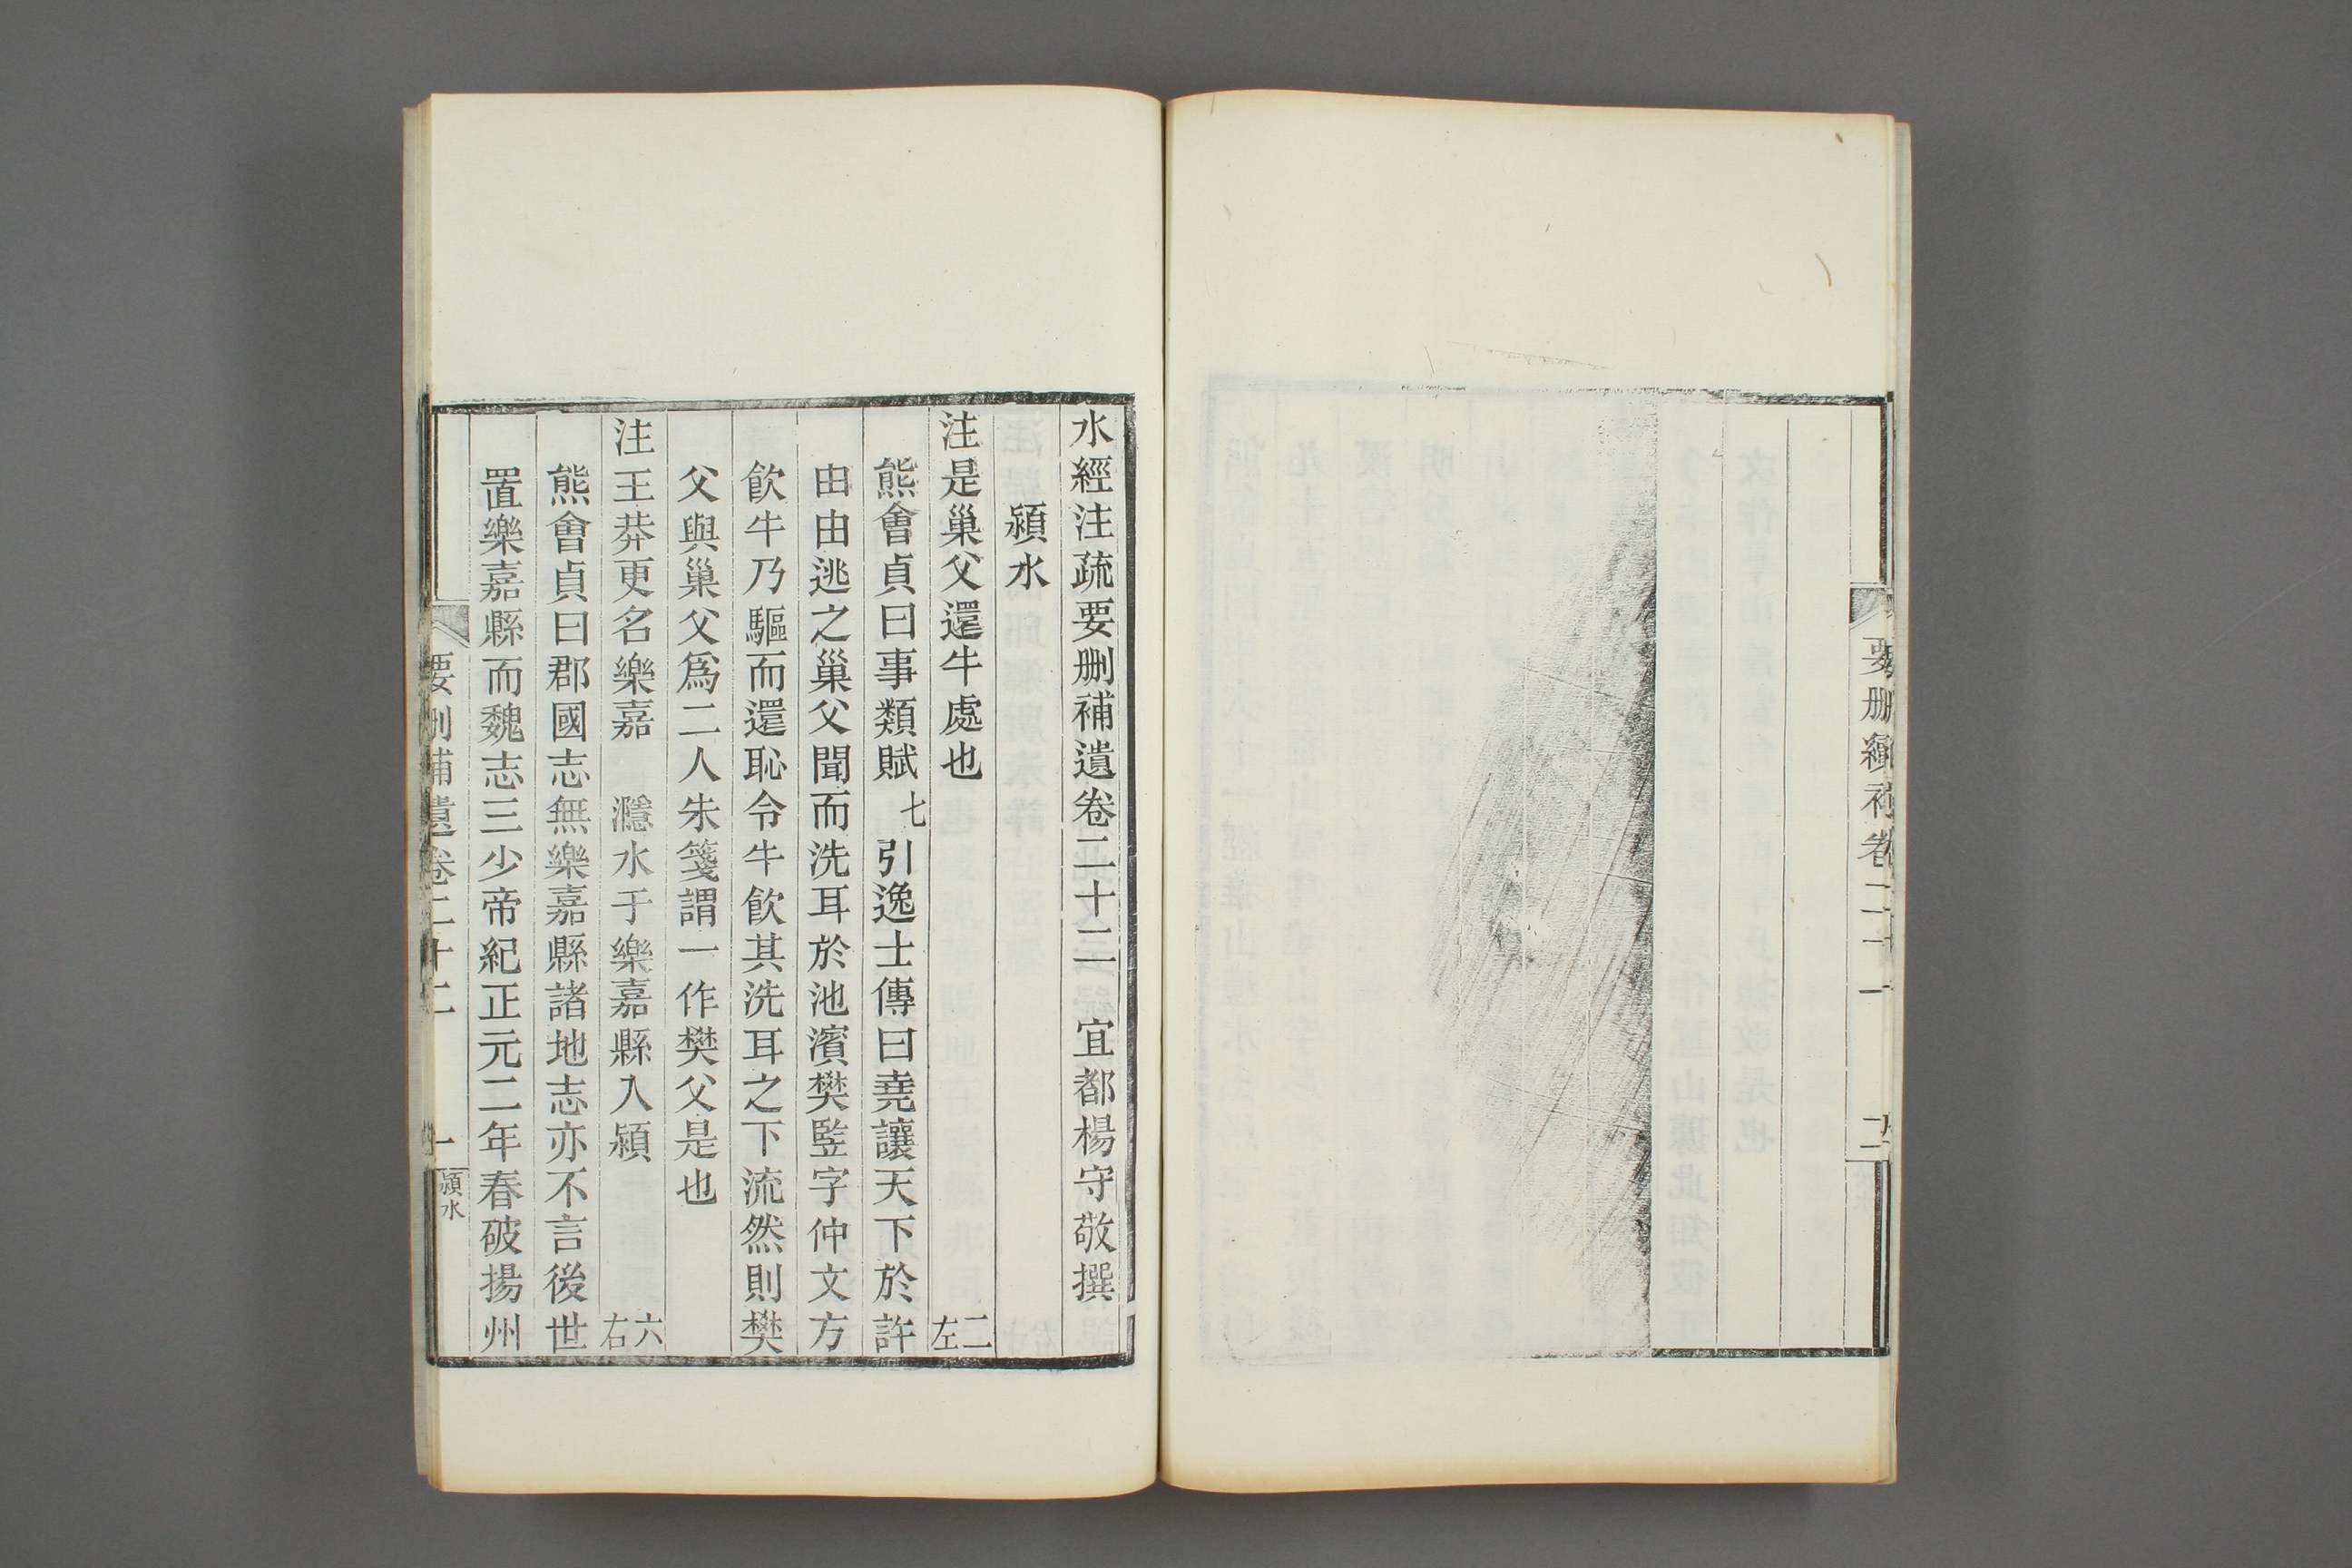 要删續補卷二十一
二
水經注疏要删補遺卷二十二　宜都楊守敬撰
潁水
注是巢父還牛處也　二左
熊會貞曰事類賦七引逸士傳曰堯讓天下於許
由由逃之巢父聞而洗耳於池濱樊監字仲文方
飲牛乃驅而還恥令牛飲其洗耳之下流然則樊
父與巢父爲二人朱箋謂一作樊父是也
注王莽更名樂嘉　濦水于樂嘉縣入潁　六右
熊會貞曰郡國志無樂嘉縣諸地志亦不言後世
置樂嘉縣而魏志三少帝紀正元二年春破揚州
要删補遺卷二十二
一
潁水